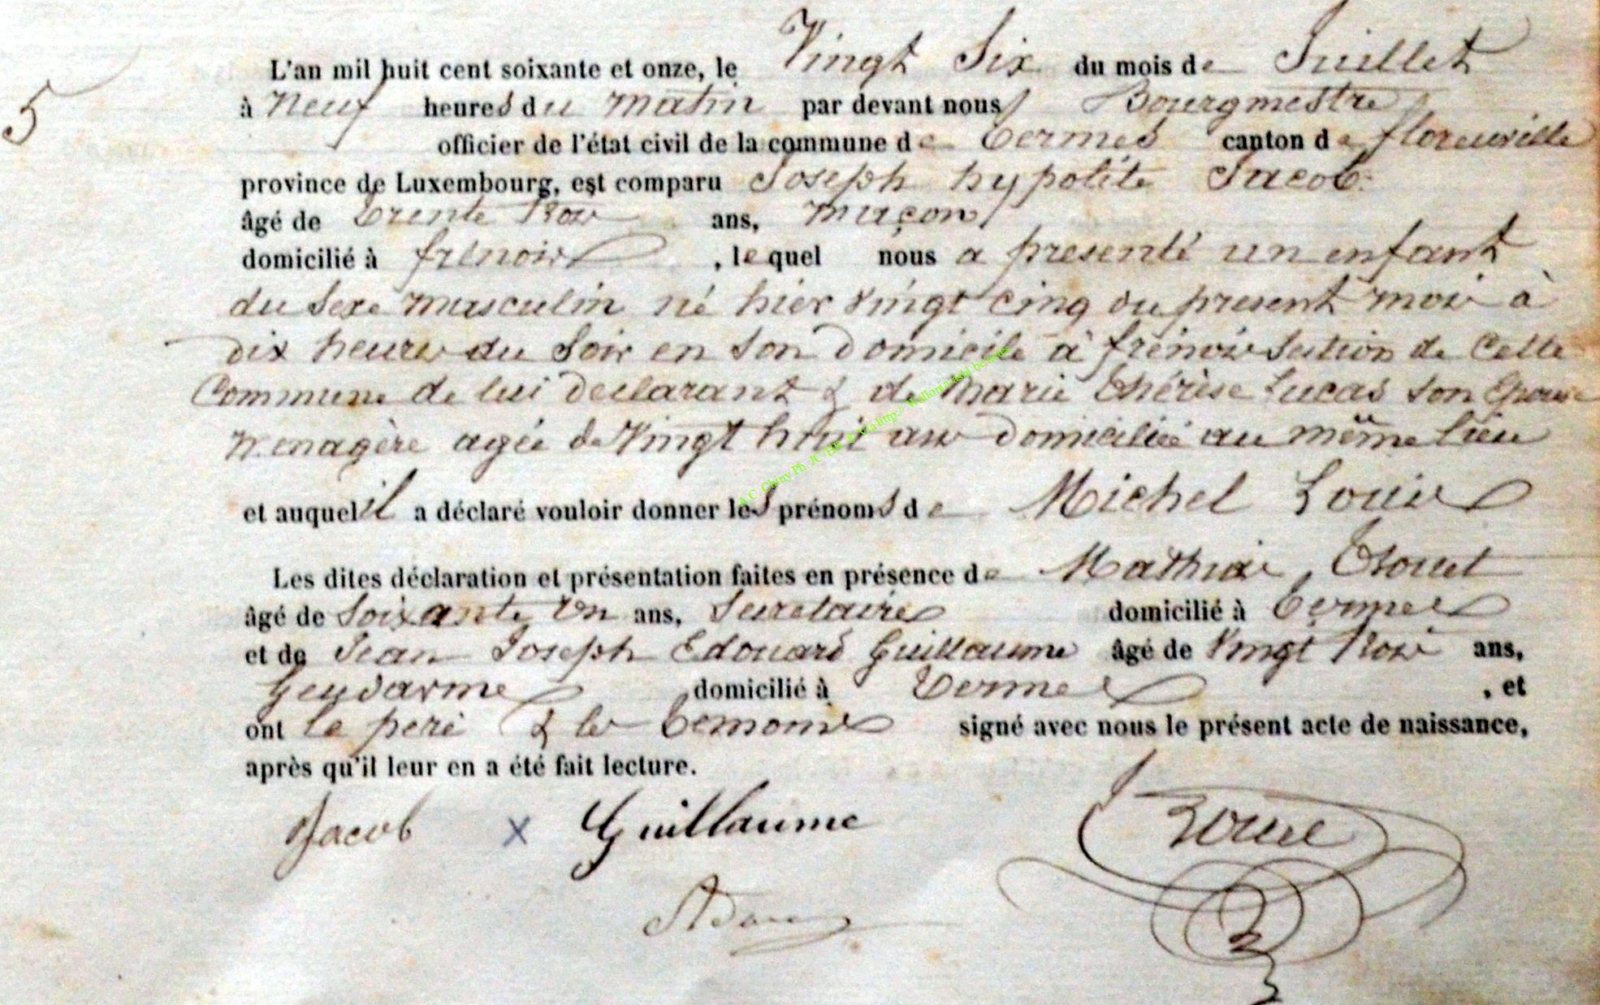 5
L'an mil huit cent soixante et onze, le Vingt Six du mois de Juillet
à Neuf heures du matin par devant nous Bourgmestre
officier de l'état civil de la commune de Termes canton de florenville
province de Luxembourg, est comparu Joseph hypolite Jacob
âgé de trente trois ans, maçon
domicilié à frénois, lequel nous a presenté un enfant
du sexe masculin né hier vingt cinq du present mois à
dix heures du soir en son domicile à frénois section de cette
Commune de lui declarant & de Marie thérèse Lucas son Epouse
menagère agée de vingt huit ans domiciliée au même lieu
et auquel il a déclaré vouloir donner les prénoms de Michel Louis
Les dites déclaration et présentation faites en présence de Mathias
âgé de soixante un ans, Secretaire domicilié à termes
et de Jean Joseph Edouard Guillaume âgé de vingt trois ans,
Gendarme domicilié à termes, et
ont le pere & les temoins signé avec nous le présent acte de naissance,
après qu'il leur en a été fait lecture.
Jacob x Guillaume
Adam